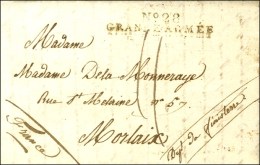 N°.28.
GRANDE ARMÉE
Madame
Madame De la Monneraye
Rue St. Melaine n° 57.
Morlaix
Dept. du Finisterre
France